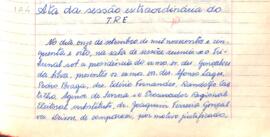 Ata da sessão extraordinária do
T.R.E.
No dia onze de setembro de mil novecentos e cin-
quenta e oito, na sala de sessões reuniu-se o Tri-
bunal sob a presidência do exmo. sr. des. Gonçalves
da Silva, presentes os exmos. srs. des. Afonso Lages,
Pedro Braga, drs. Edésio Fernandes,
e o Procurador Regional
Eleitoral substituto, dr. Joaquim Ferreira Gonçal-
ves. Deixou de comparecer, por motivo justificado,